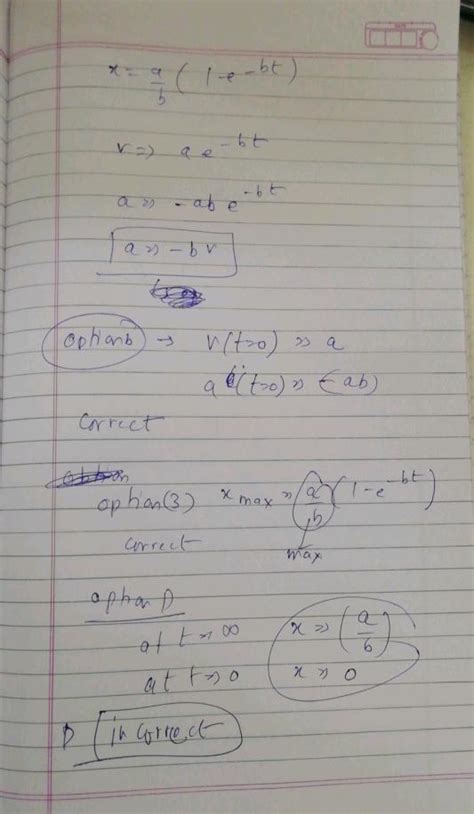 x = a/b (1-e^-bt)
v => a e^-bt
a => -ab e^-bt
a => -b v
option b → v(t=0) => a
a (t=0) => (-ab)
correct
option(3) x max => a/b (1-e^-bt)
correct max
option D
at t → ∞ x => (a/b)
at t → 0 x => 0
D incorrect